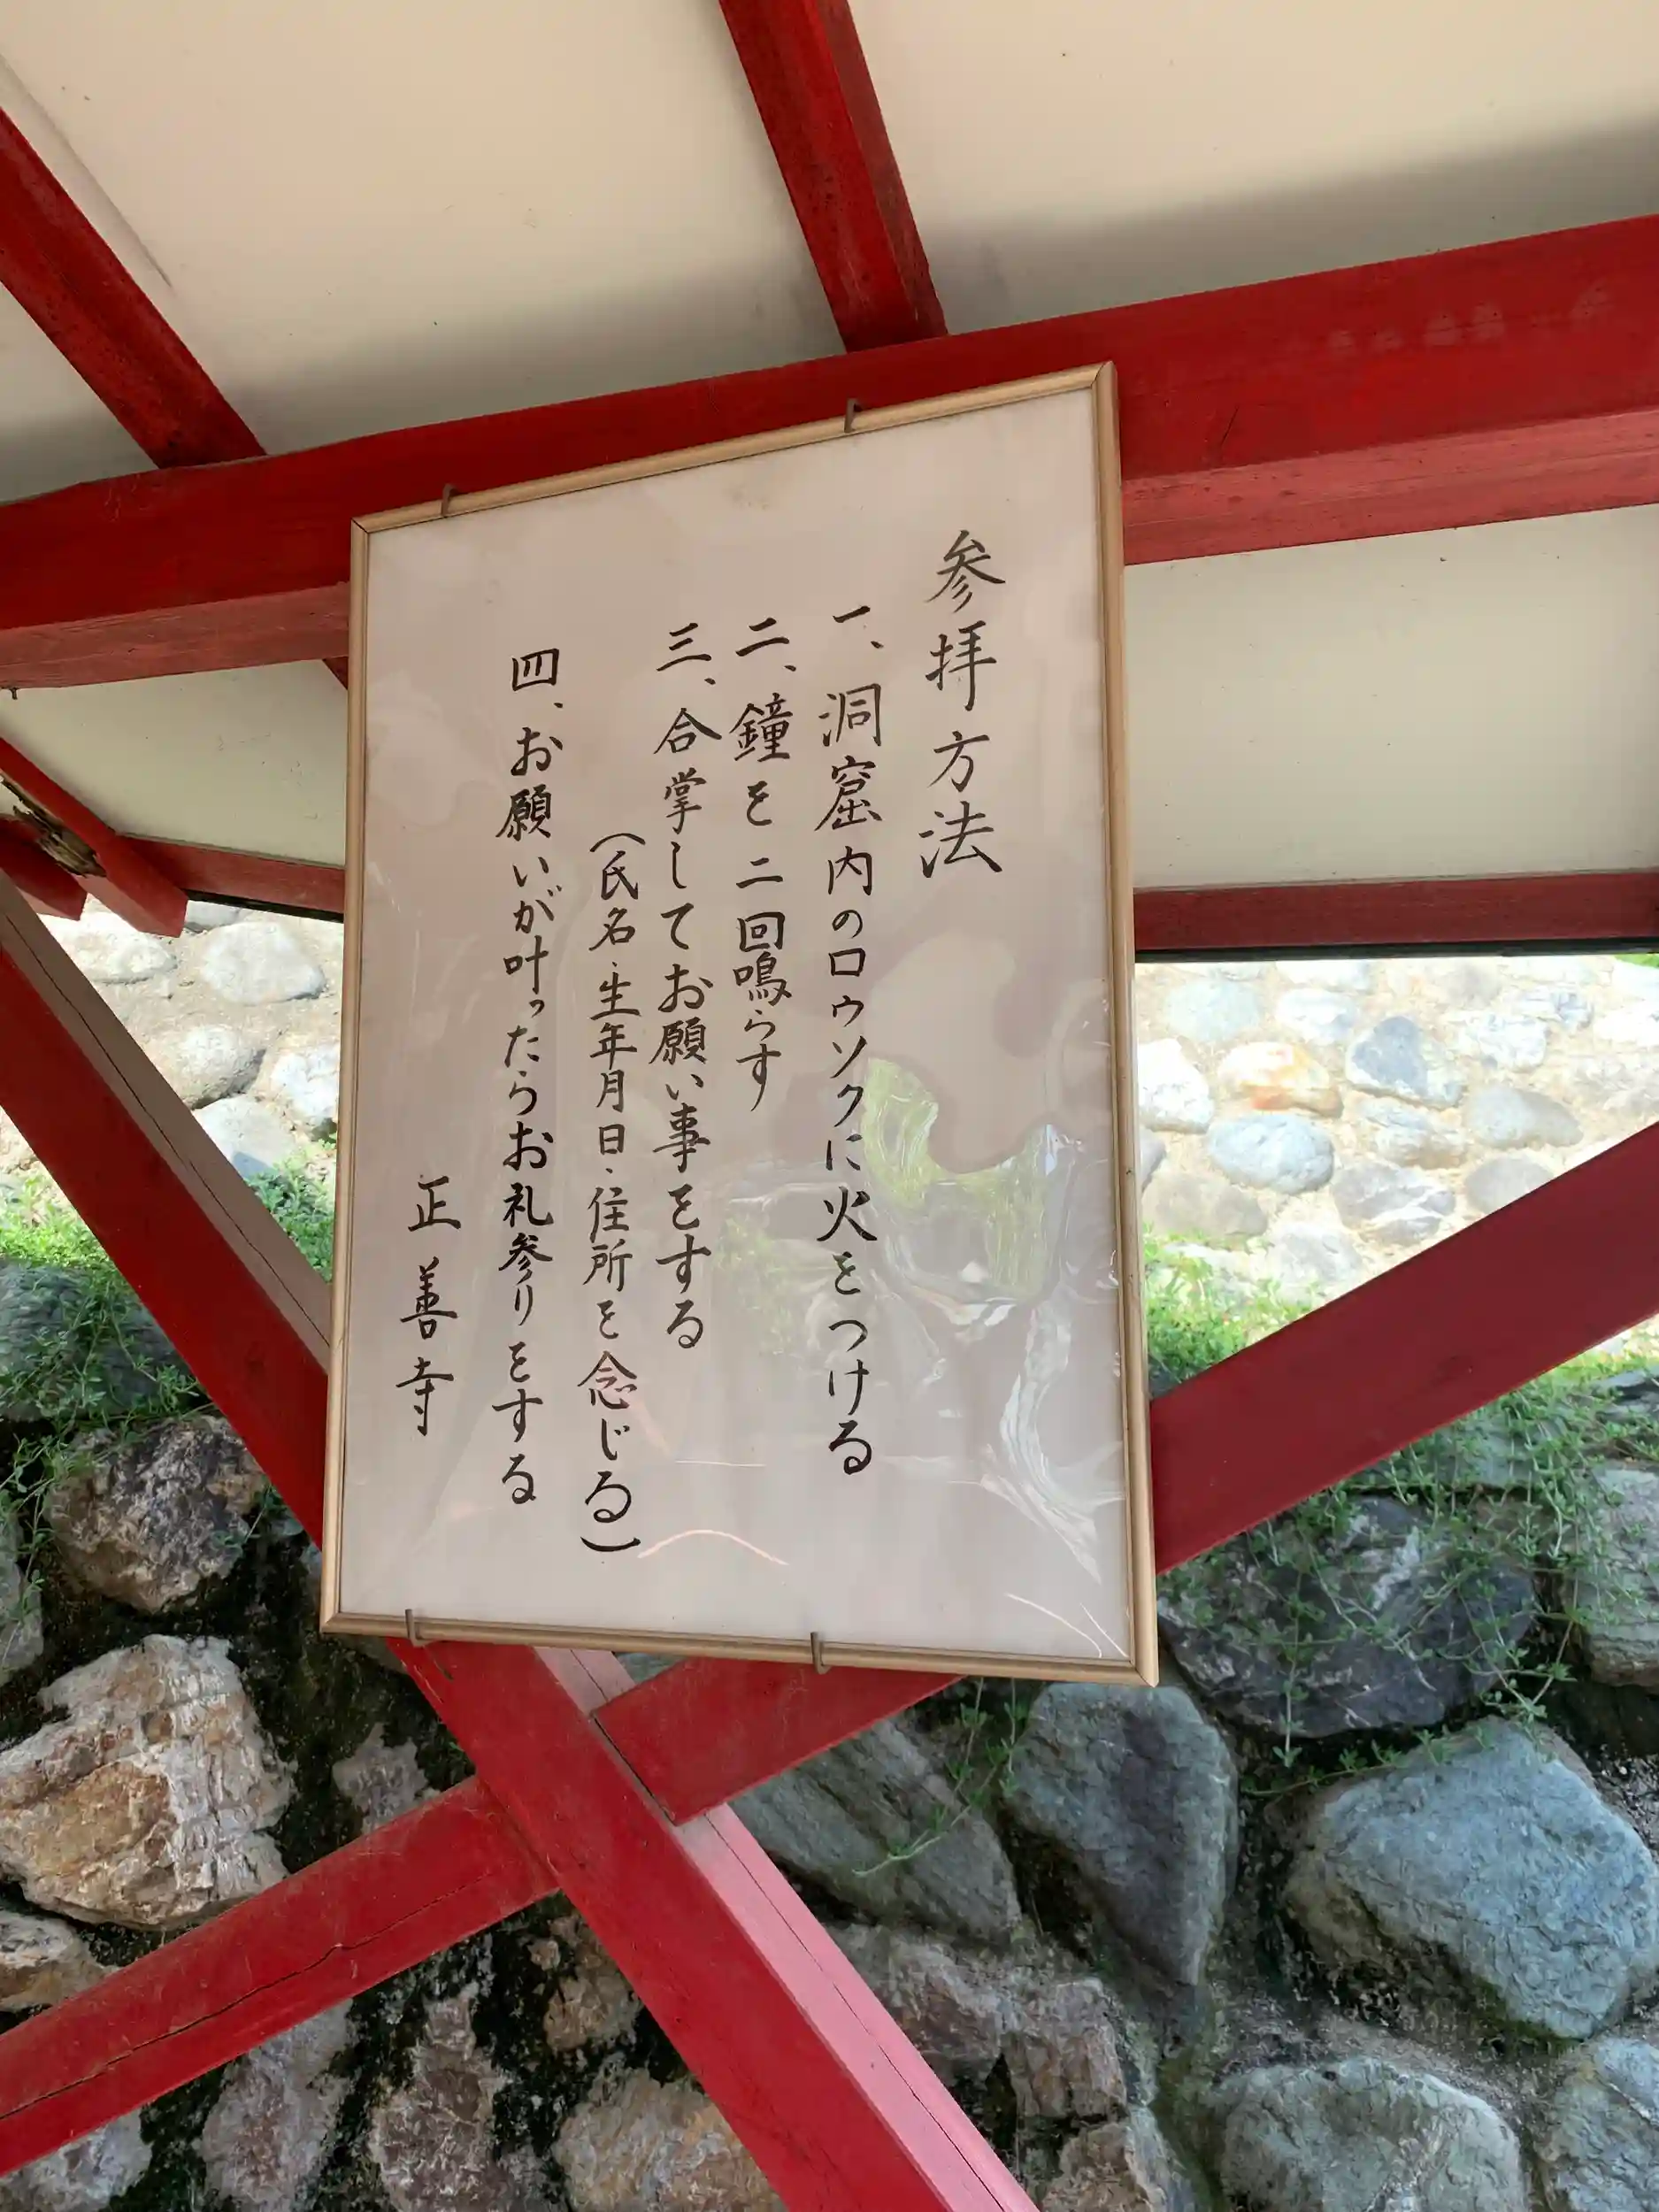 参拝方法
一、洞窟内のロウソクに火をつける
二、鐘を二回鳴らす
三、合掌してお願い事をする
（氏名・生年月日・住所を念じる）
四、お願いが叶ったらお礼参りをする
正善寺